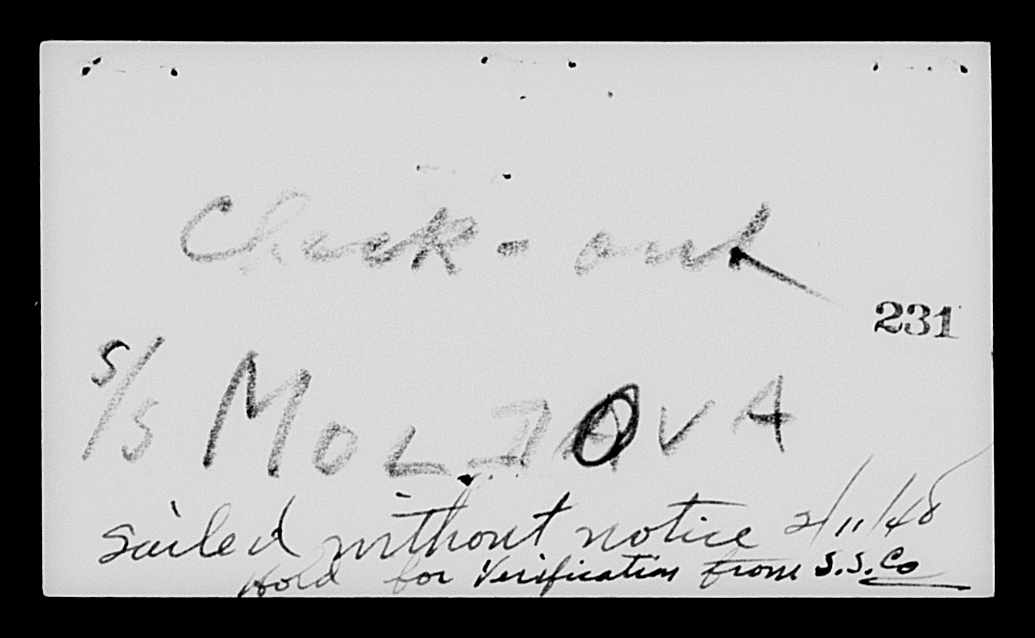 Check-out
231
S/S MOLDOVA
sailed without notice 2/11/48
Hold for Verification from S.S. Co